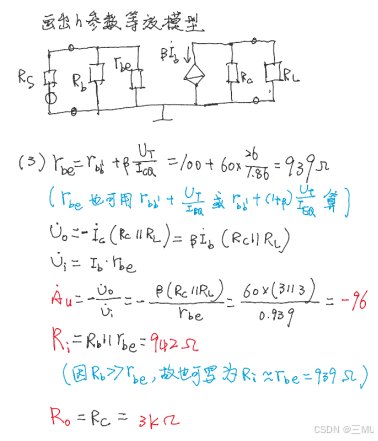 画出h参数等效模型
Rs Rb rbe βİb Rc RL
(3) rbe=rbb'+β UT/ICQ =100+60×26/1.86=939Ω
(rbe也可用rbb'+UT/IBQ或rbb'+(1+β)UT/IEQ算)
U̇o=-İc(Rc∥RL)=βİb(Rc∥RL)
U̇i=Ib·rbe
Ȧu=-U̇o/U̇i=-β(Rc∥RL)/rbe=60×(3∥3)/0.939=-96
Ri=Rb∥rbe=942Ω
(因Rb>>rbe,故也可写为Ri≈rbe=939Ω)
Ro=Rc=3KΩ
CSDN @三ML